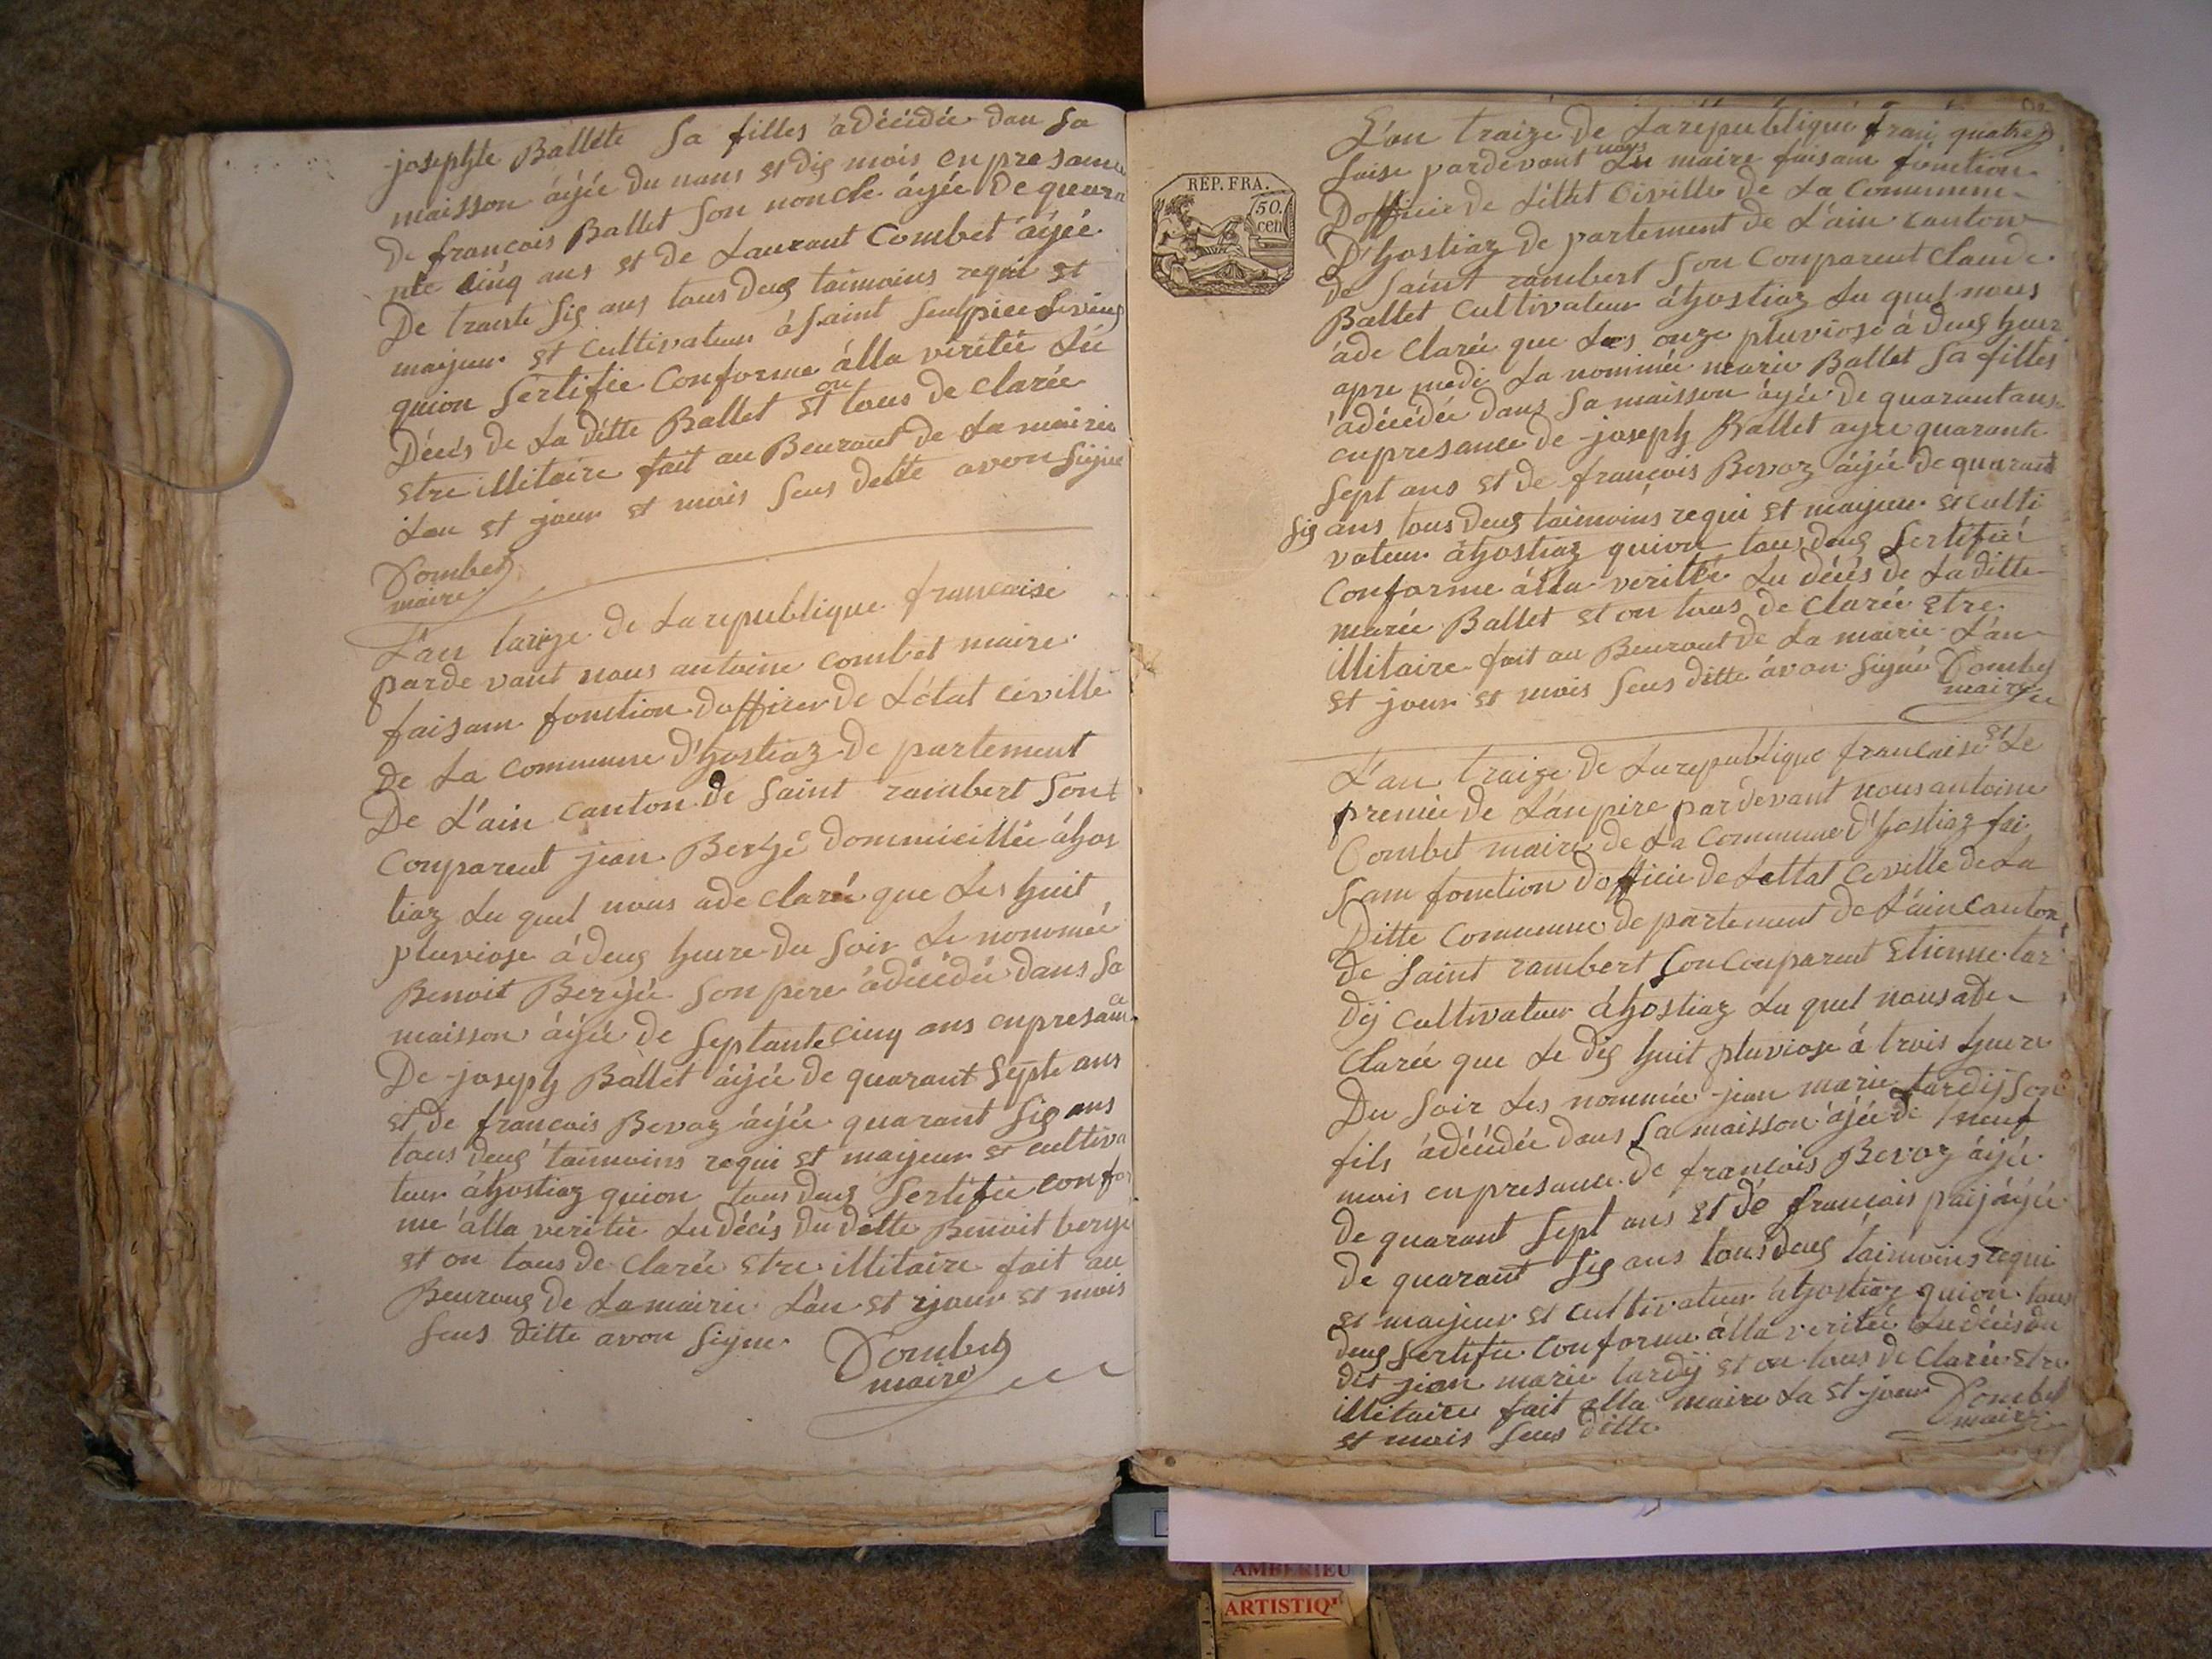 josephte Ballete Sa filles adécédée dan Sa
maisson âgée du nans et dis mois en presance
de francois Ballet Son noncle âgée De quara
nte cinq ans et de Laurant Combet âgée
De trante Sis ans tous deus taimoins requi et
majeur et cultivateur à Saint Seulpice Levieus
quion Sertifie Conforme âlla véritée du
Décés de La ditte Ballet et on tous de clarée
etre illitaire fait au Beuraut de La mairie
Lan et jour et mois Seus dette avon Signe
Combet
maire
L'an traize de Larepublique francaise
parde vant nous antoine combet maire
faisam fonction dofficier de L'état civille
De La commune d'hostiaz de partement
De L'ain canton de Saint rambert Sont
Conparent jean Bergé dommicillée áhos
tiaz Lu quel nous ade claré que Les huit
pluviose á deus heure du Soir Le nommée
Benoit Bergée Son pere ádécédée dans Sa
maisson âgée de Septante cinq ans enpresance
De joseph Ballet âgée de quarant Septe ans
et de francois Bevaz âgée quarant Sis ans
tous deus taimoins requi et majeur et cultiva
teur áhostiaz quion tous deus Sertifie confor
me álla veritée du décés du ditte Benoit berge
et on tous de clarée etre illitaire fait au
Beuraus de La mairie L'an et jour et mois
Seus ditte avon Signe
Combet
maire
L'an traize de Larepublique fran quatres
Saise pardevant nous Lu maire faisam fonction
Dofficie de L'état Civille de La Commune
D'hostiaz de partement de L'ain canton
de Saint rambert Son Conparent Claude
Ballet Cultivateur áhostiaz Lu quel nous
áde Clarée que Les onze pluviose á deus heur
apre medi La nommée marie Ballet Sa filles
adécédée dans Sa maisson âgée De quarantans
enpresance de joseph Ballet agee quarante
Sept ans et de francois Bevaz âgée de quarant
Sis ans tous deus taimoins requi et majeur et culti
vateur áhostiaz quion tous deus Sertifiée
Conforme álla veritée du décés de La ditte
marie Ballet et on tous de Clarée etre
illitaire fait au Beuraut de La mairie L'an
et jour et mois Seus ditte ávon Signé Combet
maire
REP. FRA.
50.
cen
L'an traize de Larepublique francaise et Le
premie de L'anpire pardevant nous antoine
Combet maire de La Commune d'hostiaz fai
sam fonction dofficie de Lettat Civille de La
Ditte Commune de partement de L'ain Canton
de Saint rambert Son Conparent Etienne tar
dij Cultivateur áhostiaz Lu quel nous ade
Clarée que Le dis huit pluviose á trois heure
Du Soir Les nommée jean marie tardij Son
fils ádécédée dans Sa maisson âgée de neuf
mois enpresance de francois Bevaz âgée
de quarant Sept ans et de francois paij âgée
de quarant Sis ans tous deus taimoins requi
et majeur et cultivateur áhostiaz quion tous
deus Sertifie Conforme álla veritée du décés du
dit jean marie tardij et on tous de Clarée etre
illitaire fait alla maire La et jour Combet
et mois Seus ditte maire
AMBERIEU
ARTISTIQ